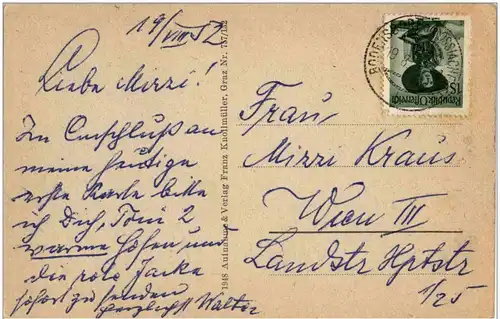 19/VIII 52
Liebe Mizzi!
Im Anschluß an
meine heutige
erste Karte bitte
ich Dich, Tom 2
warme Hosen und
die rote Jacke
sofort zu senden
herzlichst Walter
1948 Aufnahme & Verlag Franz Knollmüller, Graz Nr. 737/132
BODENSDORF
1S
Republik Österreich
Frau
Mizzi Kraus
Wien III
Landstr Hptstr
1/25